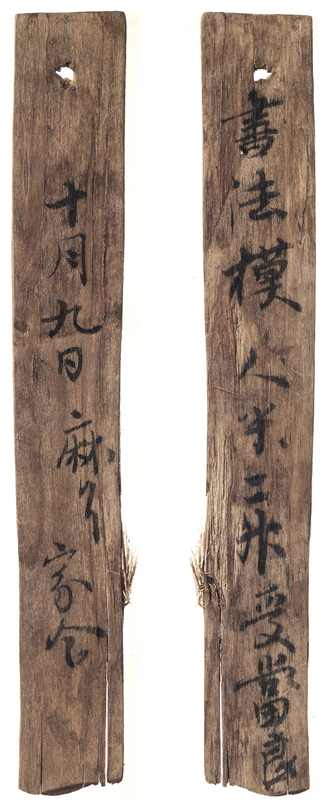 書法模人米二升受當良
十月九日 麻呂 家令